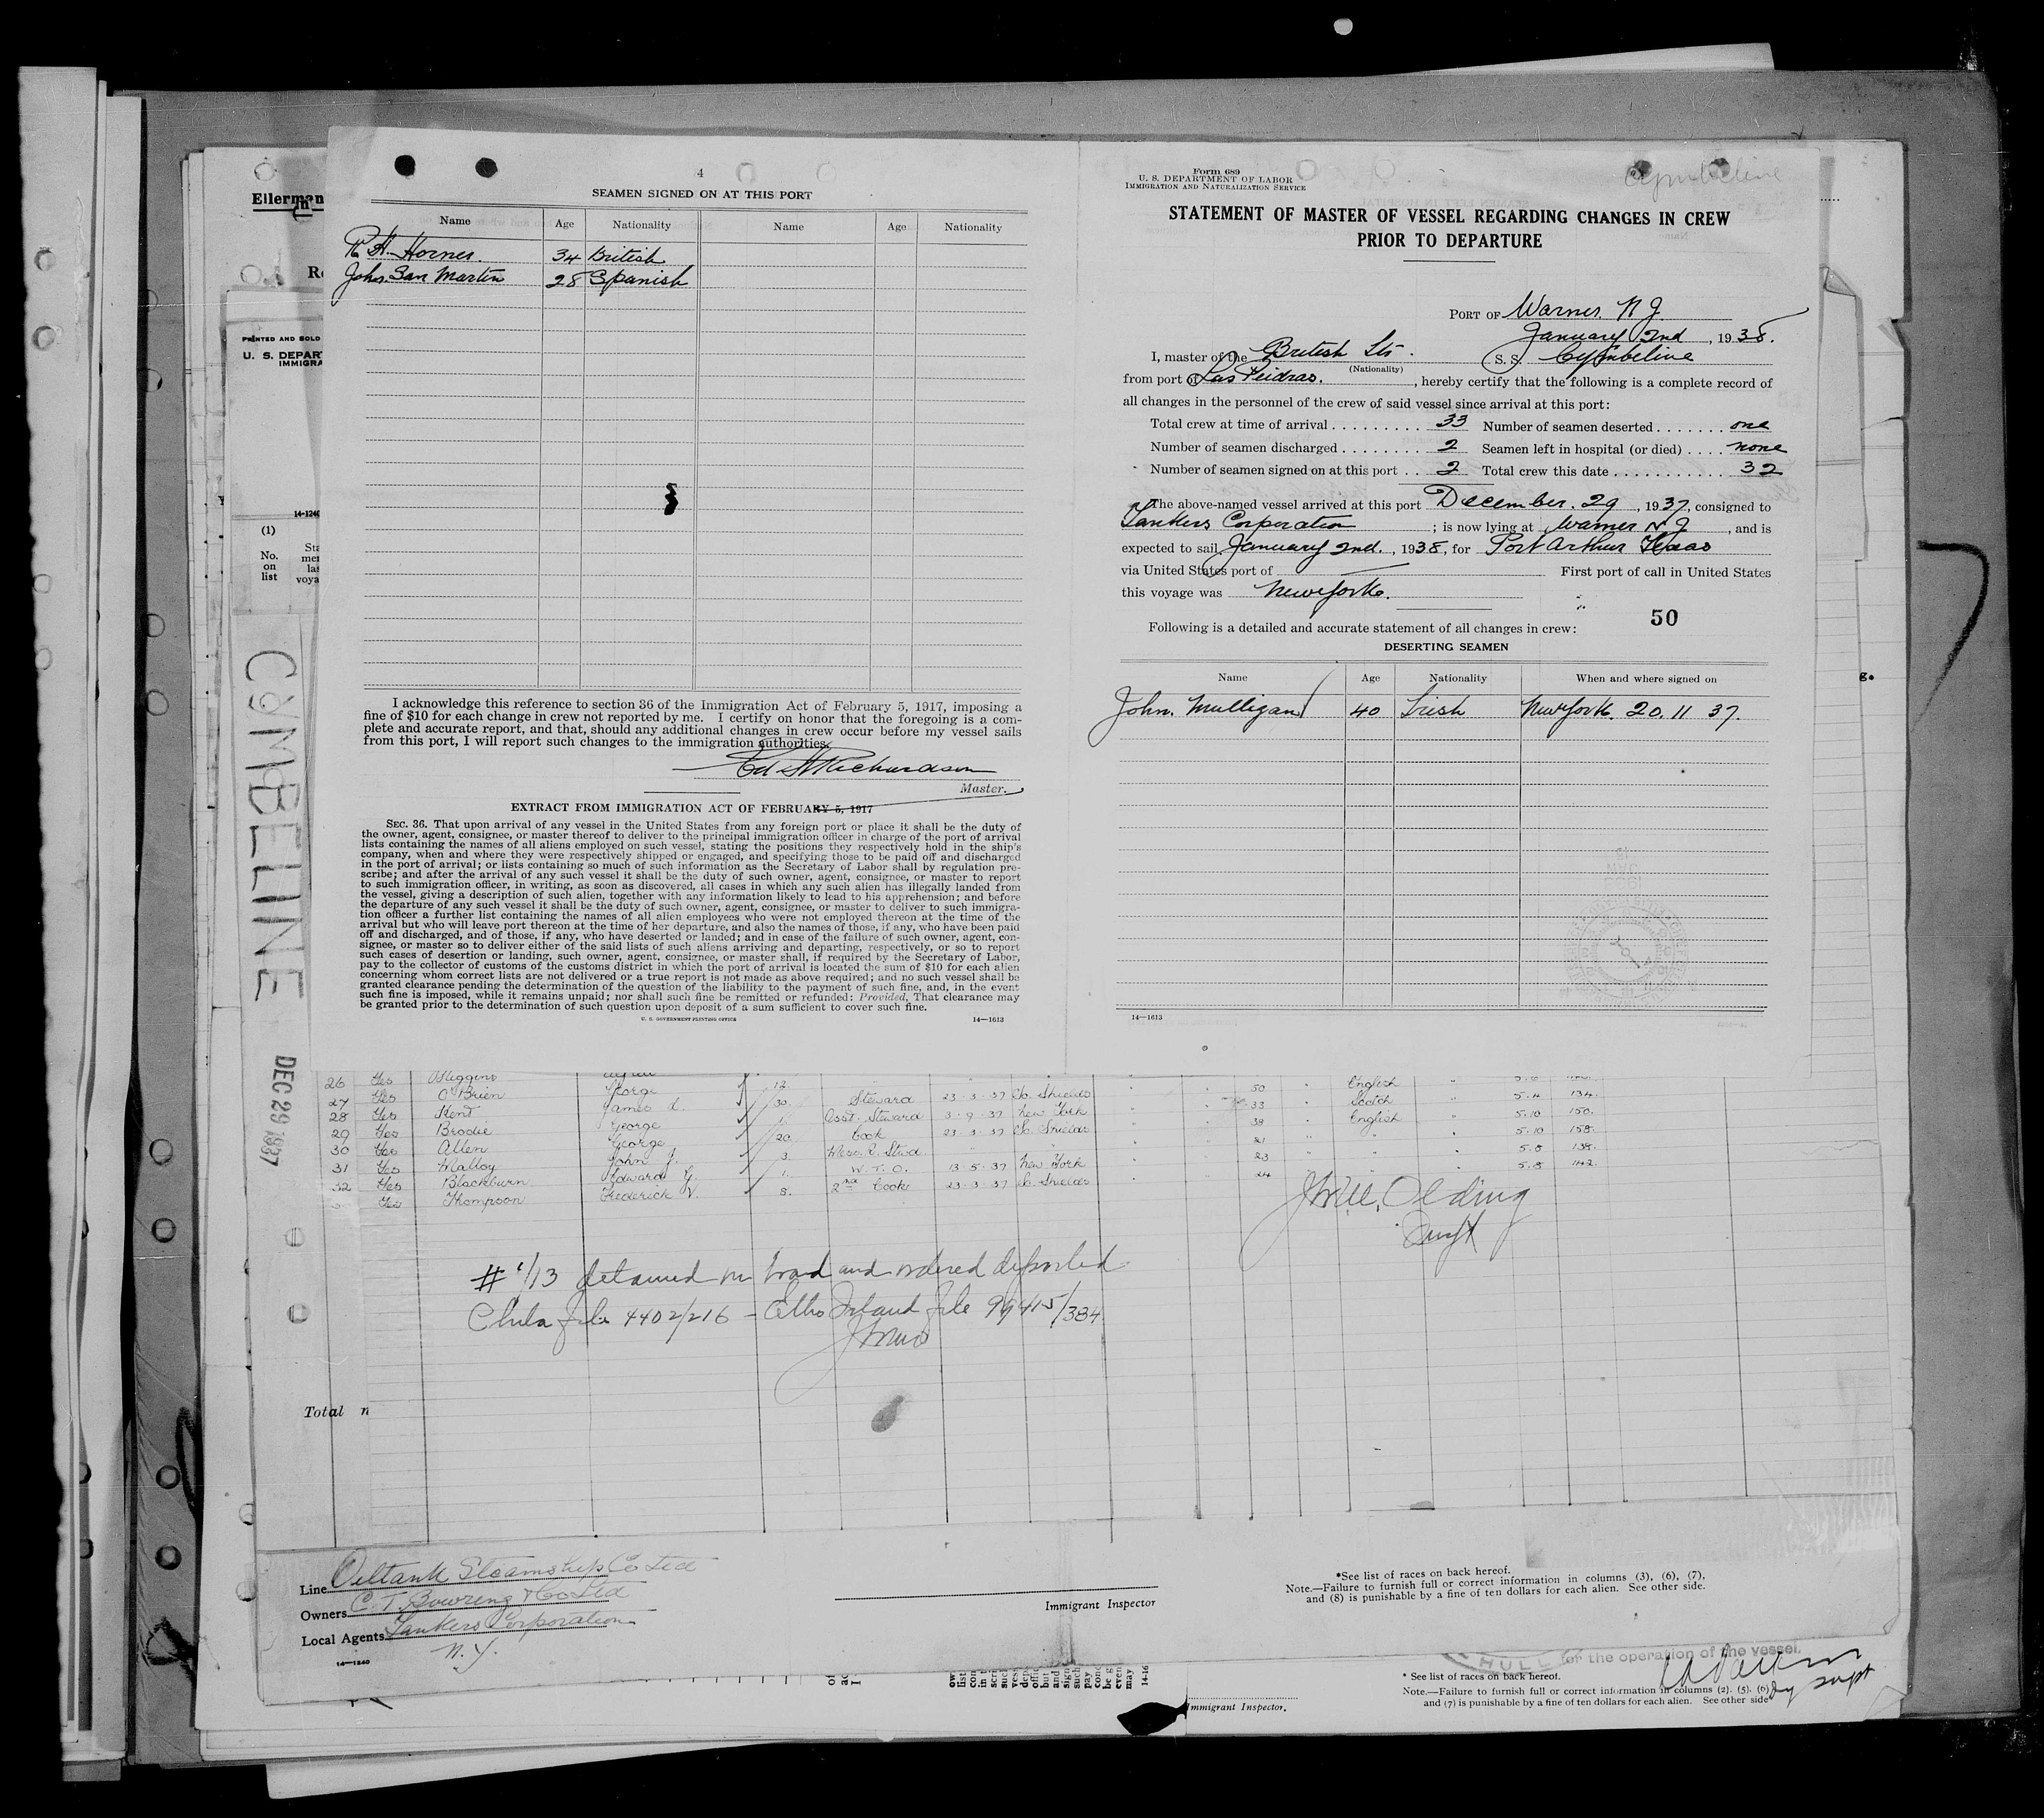 4
SEAMEN SIGNED ON AT THIS PORT
Name Age Nationality Name Age Nationality
R H Horner. 34 British
John San Martin 28 Spanish
I acknowledge this reference to section 36 of the Immigration Act of February 5, 1917, imposing a
fine of $10 for each change in crew not reported by me. I certify on honor that the foregoing is a com-
plete and accurate report, and that, should any additional changes in crew occur before my vessel sails
from this port, I will report such changes to the immigration authorities.
Richardson
Master.
EXTRACT FROM IMMIGRATION ACT OF FEBRUARY 5, 1917
SEC. 36. That upon arrival of any vessel in the United States from any foreign port or place it shall be the duty of
the owner, agent, consignee, or master thereof to deliver to the principal immigration officer in charge of the port of arrival
lists containing the names of all aliens employed on such vessel, stating the positions they respectively hold in the ship's
company, when and where they were respectively shipped or engaged, and specifying those to be paid off and discharged
in the port of arrival; or lists containing so much of such information as the Secretary of Labor shall by regulation pre-
scribe; and after the arrival of any such vessel it shall be the duty of such owner, agent, consignee, or master to report
to such immigration officer, in writing, as soon as discovered, all cases in which any such alien has illegally landed from
the vessel, giving a description of such alien, together with any information likely to lead to his apprehension; and before
the departure of any such vessel it shall be the duty of such owner, agent, consignee, or master to deliver to such immigra-
tion officer a further list containing the names of all alien employees who were not employed thereon at the time of the
arrival but who will leave port thereon at the time of her departure, and also the names of those, if any, who have been paid
off and discharged, and of those, if any, who have deserted or landed; and in case of the failure of such owner, agent, con-
signee, or master so to deliver either of the said lists of such aliens arriving and departing, respectively, or so to report
such cases of desertion or landing, such owner, agent, consignee, or master shall, if required by the Secretary of Labor,
pay to the collector of customs of the customs district in which the port of arrival is located the sum of $10 for each alien
concerning whom correct lists are not delivered or a true report is not made as above required; and no such vessel shall be
granted clearance pending the determination of the question of the liability to the payment of such fine, and, in the event
such fine is imposed, while it remains unpaid; nor shall such fine be remitted or refunded: Provided, That clearance may
be granted prior to the determination of such question upon deposit of a sum sufficient to cover such fine.
U. S. GOVERNMENT PRINTING OFFICE 14—1613
Form 689
U. S. DEPARTMENT OF LABOR
IMMIGRATION AND NATURALIZATION SERVICE
Cymbeline
STATEMENT OF MASTER OF VESSEL REGARDING CHANGES IN CREW
PRIOR TO DEPARTURE
PORT OF Warner. N J.
January 2nd, 1938.
I, master of the British Str. S. S. Cymbeline
(Nationality)
from port of Las Peidras., hereby certify that the following is a complete record of
all changes in the personnel of the crew of said vessel since arrival at this port:
Total crew at time of arrival 33 Number of seamen deserted one
Number of seamen discharged 2 Seamen left in hospital (or died) none
Number of seamen signed on at this port 2 Total crew this date 32
The above-named vessel arrived at this port December. 29, 1937, consigned to
Tankers Corporation; is now lying at Warner N J, and is
expected to sail January 2nd., 1938, for Port Arthur Texas
via United States port of — First port of call in United States
this voyage was New York.
50
Following is a detailed and accurate statement of all changes in crew:
DESERTING SEAMEN
Name Age Nationality When and where signed on
John. Mulligan 40 Irish New York. 20. 11 37.
14—1613
Ellerman
PRINTED AND SOLD
U. S. DEPAR
IMMIGRA
14-1240
(1)
No. on list
CYMBELINE
DEC 29 1937
26 Yes O'Higgins
27 Yes O'Brien George 12. 50 English
28 Yes Kent James L. 30. Steward 23·3·37 So. Shields 33 Scotch 5.4 134.
29 Yes Brodie George Asst. Steward 3·9·37 New York 38 English 5.10 150.
30 Yes Allen George 20. Cook 23·3·37 So. Shields 21 5.10 158.
31 Yes Malloy John J. 3. 23 5.8 138.
32 Yes Blackburn Edward G. 1. W. T. O. 13·5·37 New York 24 5.8 142.
Yes Thompson Frederick V. 8. 2nd Cook 23·3·37 So. Shields
Olding
# 1/13 detained on board and ordered deported
Phila file 4402/216 — Ellis Island file 99415/384
Total n
Line Oiltank Steamship Co Ltd
Owners C. T. Bowring & Co Ltd
Local Agents Tankers Corporation
N. Y.
14—1240
Immigrant Inspector
*See list of races on back hereof.
Note.—Failure to furnish full or correct information in columns (3), (6), (7),
and (8) is punishable by a fine of ten dollars for each alien. See other side.
HULL
for the operation of the vessel.
* See list of races on back hereof.
Note.—Failure to furnish full or correct information in columns (2), (5), (6)
and (7) is punishable by a fine of ten dollars for each alien. See other side
Immigrant Inspector.